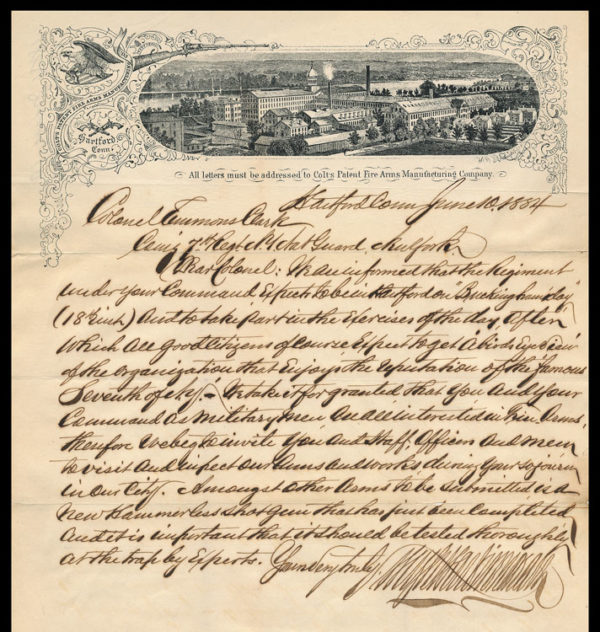 COLT'S PATENT FIRE ARMS MANUFACTURING
Hartford
Conn.
All letters must be addressed to Colt's Patent Fire Arms Manufacturing Company.
Hartford Conn June 10. 1884
Colonel Emmons Clark
Comg 7th Regt Natl Guard, New York.
Dear Colonel: We are informed that the Regiment
under your Command Expects to be in Hartford on "Buckingham day"
(18th inst) and to take part in the Exercises of the day, after
which all good Citizens of course Expect to get a birds Eye view
of the organization that Enjoys the reputation of the famous
Seventh of N.Y. We take it for granted that you and your
Command as Military men are all interested in Fire Arms,
therefore we beg to invite you and Staff, Officers and men
to visit and inspect our Arms and works during your sojourn
in our City. Amongst other Arms to be submitted is a
new Hammerless Shot Gun that has just been completed
and it is important that it should be tested thoroughly
at the trap by Experts. Yours very truly,